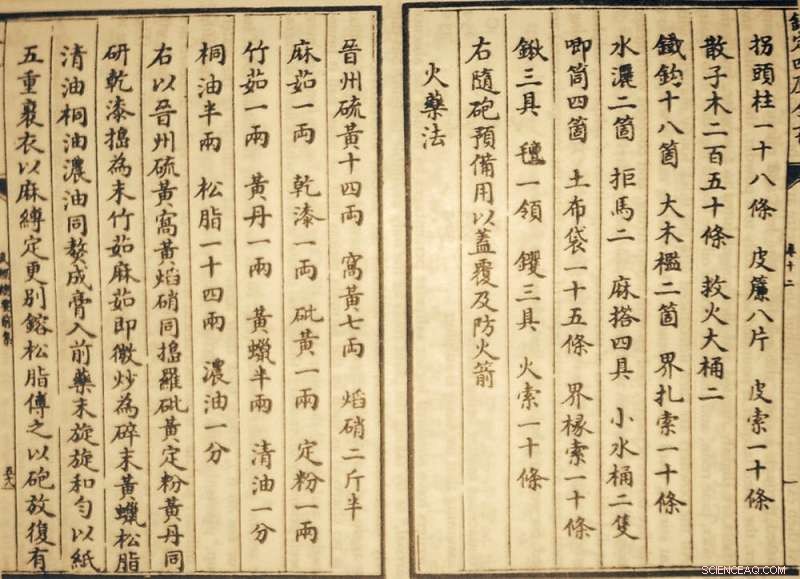 欽定四庫全書
卷十二
拐頭柱一十八條 皮簾八片 皮索一十條
散子木二百五十條 救火大桶二
鐵鈎十八箇 大木檻二箇 界扎索一十條
水濃二箇 拒馬二 麻搭四具 小水桶二隻
唧筒四箇 土布袋一十五條 界椽索一十條
鍬三具 氊一領 钁三具 火索一十條
右隨砲預備用以蓋覆及防火箭
火藥法
晉州硫黃十四兩 窩黃七兩 焰硝二斤半
麻茹一兩 乾漆一兩 砒黃一兩 定粉一兩
竹茹一兩 黃丹一兩 黃蠟半兩 清油一分
桐油半兩 松脂一十四兩 濃油一分
右以晉州硫黃窩黃焰硝同搗羅砒黃定粉黃丹同
研乾漆搗為末竹茹麻茹即微炒為碎末黃蠟松脂
清油桐油濃油同熬成膏入前藥末旋旋和勻以紙
五重裹衣以麻縛定更別鎔松脂傅之以砲放復有
SCIENCEAQ.COM